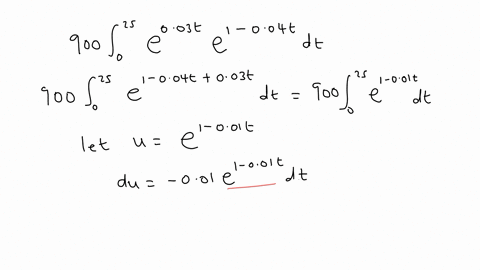 900 ∫₀²⁵ e^{0.03t} e^{1-0.04t} dt
900 ∫₀²⁵ e^{1-0.04t+0.03t} dt = 900 ∫₀²⁵ e^{1-0.01t} dt
let u = e^{1-0.01t}
du = -0.01 e^{1-0.01t} dt